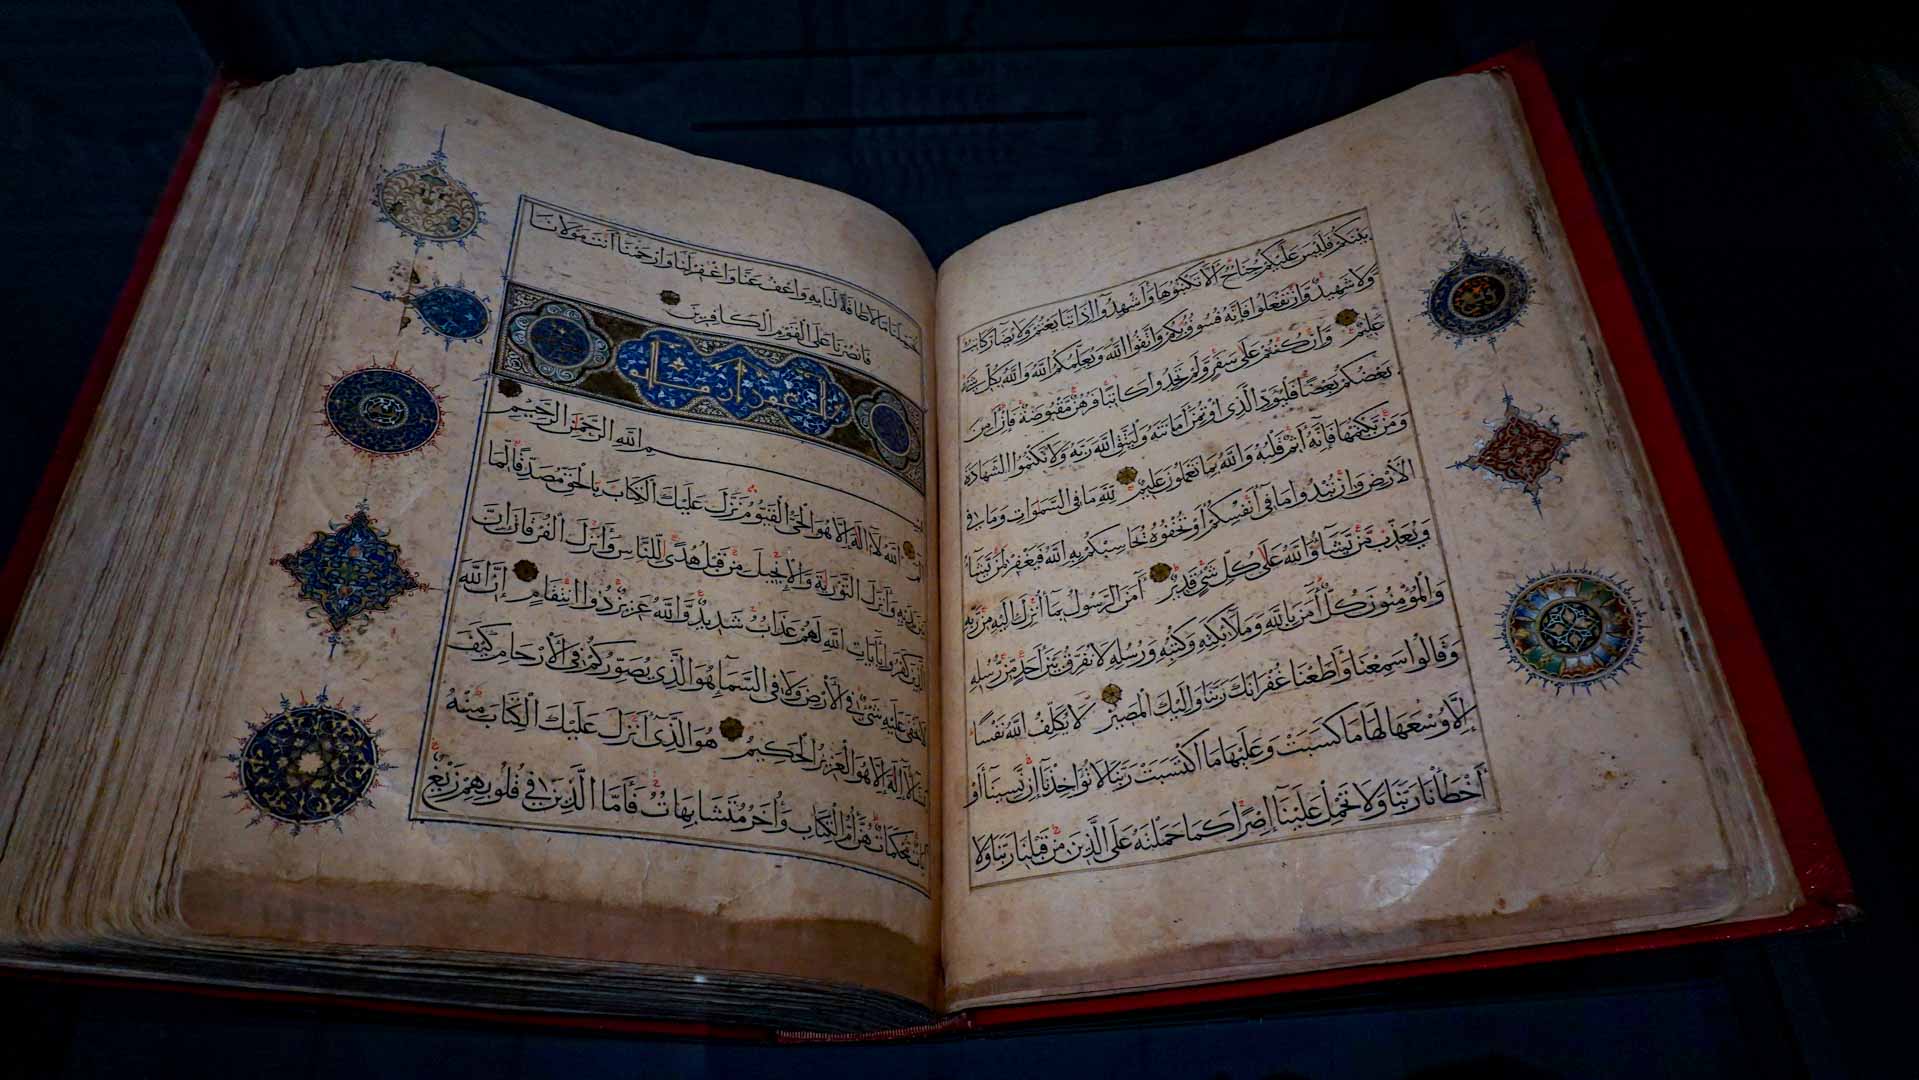 بَيْنَكُمْ فَلَيْسَ عَلَيْكُمْ جُنَاحٌ أَلَّا تَكْتُبُوهَا وَأَشْهِدُوا إِذَا تَبَايَعْتُمْ وَلَا يُضَارَّ كَاتِبٌ
وَلَا شَهِيدٌ وَإِنْ تَفْعَلُوا فَإِنَّهُ فُسُوقٌ بِكُمْ وَاتَّقُوا اللَّهَ وَيُعَلِّمُكُمُ اللَّهُ وَاللَّهُ بِكُلِّ شَيْءٍ
عَلِيمٌ وَإِنْ كُنْتُمْ عَلَى سَفَرٍ وَلَمْ تَجِدُوا كَاتِبًا فَرِهَنٌ مَقْبُوضَةٌ فَإِنْ أَمِنَ
بَعْضُكُمْ بَعْضًا فَلْيُؤَدِّ الَّذِي اؤْتُمِنَ أَمَانَتَهُ وَلْيَتَّقِ اللَّهَ رَبَّهُ وَلَا تَكْتُمُوا الشَّهَادَةَ
وَمَنْ يَكْتُمْهَا فَإِنَّهُ آثِمٌ قَلْبُهُ وَاللَّهُ بِمَا تَعْمَلُونَ عَلِيمٌ لِلَّهِ مَا فِي السَّمَوَاتِ وَمَا فِي
الْأَرْضِ وَإِنْ تُبْدُوا مَا فِي أَنْفُسِكُمْ أَوْ تُخْفُوهُ يُحَاسِبْكُمْ بِهِ اللَّهُ فَيَغْفِرُ لِمَنْ يَشَاءُ
وَيُعَذِّبُ مَنْ يَشَاءُ وَاللَّهُ عَلَى كُلِّ شَيْءٍ قَدِيرٌ آمَنَ الرَّسُولُ بِمَا أُنْزِلَ إِلَيْهِ مِنْ رَبِّهِ
وَالْمُؤْمِنُونَ كُلٌّ آمَنَ بِاللَّهِ وَمَلَائِكَتِهِ وَكُتُبِهِ وَرُسُلِهِ لَا نُفَرِّقُ بَيْنَ أَحَدٍ مِنْ رُسُلِهِ
وَقَالُوا سَمِعْنَا وَأَطَعْنَا غُفْرَانَكَ رَبَّنَا وَإِلَيْكَ الْمَصِيرُ لَا يُكَلِّفُ اللَّهُ نَفْسًا
إِلَّا وُسْعَهَا لَهَا مَا كَسَبَتْ وَعَلَيْهَا مَا اكْتَسَبَتْ رَبَّنَا لَا تُؤَاخِذْنَا إِنْ نَسِينَا أَوْ
أَخْطَأْنَا رَبَّنَا وَلَا تَحْمِلْ عَلَيْنَا إِصْرًا كَمَا حَمَلْتَهُ عَلَى الَّذِينَ مِنْ قَبْلِنَا رَبَّنَا وَلَا
تُحَمِّلْنَا مَا لَا طَاقَةَ لَنَا بِهِ وَاعْفُ عَنَّا وَاغْفِرْ لَنَا وَارْحَمْنَا أَنْتَ مَوْلَانَا
فَانْصُرْنَا عَلَى الْقَوْمِ الْكَافِرِينَ
بِسْمِ اللَّهِ الرَّحْمَنِ الرَّحِيمِ
الم اللَّهُ لَا إِلَهَ إِلَّا هُوَ الْحَيُّ الْقَيُّومُ نَزَّلَ عَلَيْكَ الْكِتَابَ بِالْحَقِّ مُصَدِّقًا لِمَا
بَيْنَ يَدَيْهِ وَأَنْزَلَ التَّوْرَيةَ وَالْإِنْجِيلَ مِنْ قَبْلُ هُدًى لِلنَّاسِ وَأَنْزَلَ الْفُرْقَانَ إِنَّ
الَّذِينَ كَفَرُوا بِآيَاتِ اللَّهِ لَهُمْ عَذَابٌ شَدِيدٌ وَاللَّهُ عَزِيزٌ ذُو انْتِقَامٍ إِنَّ اللَّهَ
لَا يَخْفَى عَلَيْهِ شَيْءٌ فِي الْأَرْضِ وَلَا فِي السَّمَاءِ هُوَ الَّذِي يُصَوِّرُكُمْ فِي الْأَرْحَامِ كَيْفَ
يَشَاءُ لَا إِلَهَ إِلَّا هُوَ الْعَزِيزُ الْحَكِيمُ هُوَ الَّذِي أَنْزَلَ عَلَيْكَ الْكِتَابَ مِنْهُ
آيَاتٌ مُحْكَمَاتٌ هُنَّ أُمُّ الْكِتَابِ وَأُخَرُ مُتَشَابِهَاتٌ فَأَمَّا الَّذِينَ فِي قُلُوبِهِمْ زَيْغٌ